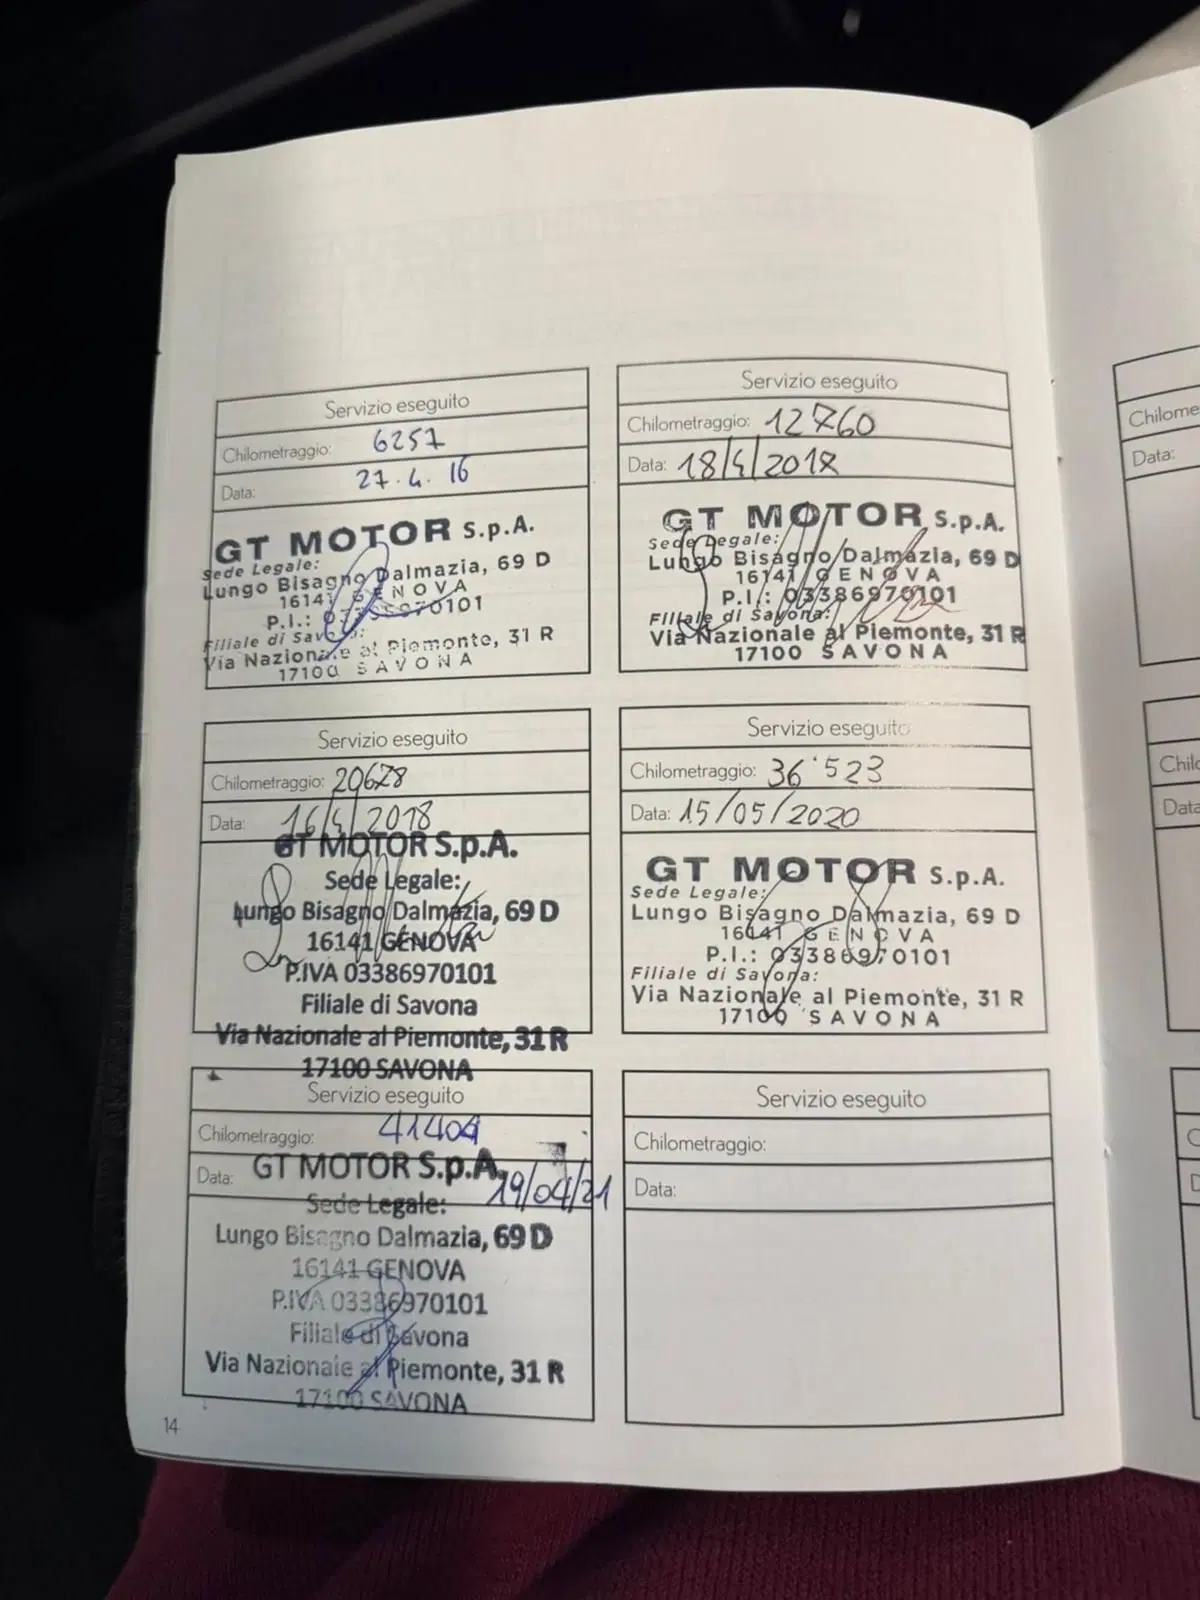 Servizio eseguito
Chilometraggio: 6257
Data: 27.4.16
GT MOTOR S.p.A.
Sede Legale:
Lungo Bisagno Dalmazia, 69 D
16141 GENOVA
P.I.: 03386970101
Filiale di Savona:
Via Nazionale al Piemonte, 31 R
17100 SAVONA
Servizio eseguito
Chilometraggio: 12760
Data:
GT MOTOR S.p.A.
Sede Legale:
Lungo Bisagno Dalmazia, 69 D
16141 GENOVA
P.I.: 03386970101
Filiale di Savona:
Via Nazionale al Piemonte, 31 R
17100 SAVONA
Servizio eseguito
Chilometraggio: 20678
Data: 16/4/2018
GT MOTOR S.p.A.
Sede Legale:
Lungo Bisagno Dalmazia, 69 D
16141 GENOVA
P.IVA 03386970101
Filiale di Savona
Via Nazionale al Piemonte, 31 R
17100 SAVONA
Servizio eseguito
Chilometraggio: 36'523
Data: 15/05/2020
GT MOTOR S.p.A.
Sede Legale:
Lungo Bisagno Dalmazia, 69 D
16141 GENOVA
P.I.: 03386970101
Filiale di Savona:
Via Nazionale al Piemonte, 31 R
17100 SAVONA
Servizio eseguito
Chilometraggio: 41404
Data: 19/04/21
GT MOTOR S.p.A.
Sede Legale:
Lungo Bisagno Dalmazia, 69 D
16141 GENOVA
P.IVA 03386970101
Filiale di Savona
Via Nazionale al Piemonte, 31 R
17100 SAVONA
Servizio eseguito
Chilometraggio:
Data:
14
Chilome
Data:
Chil
Data
C
D